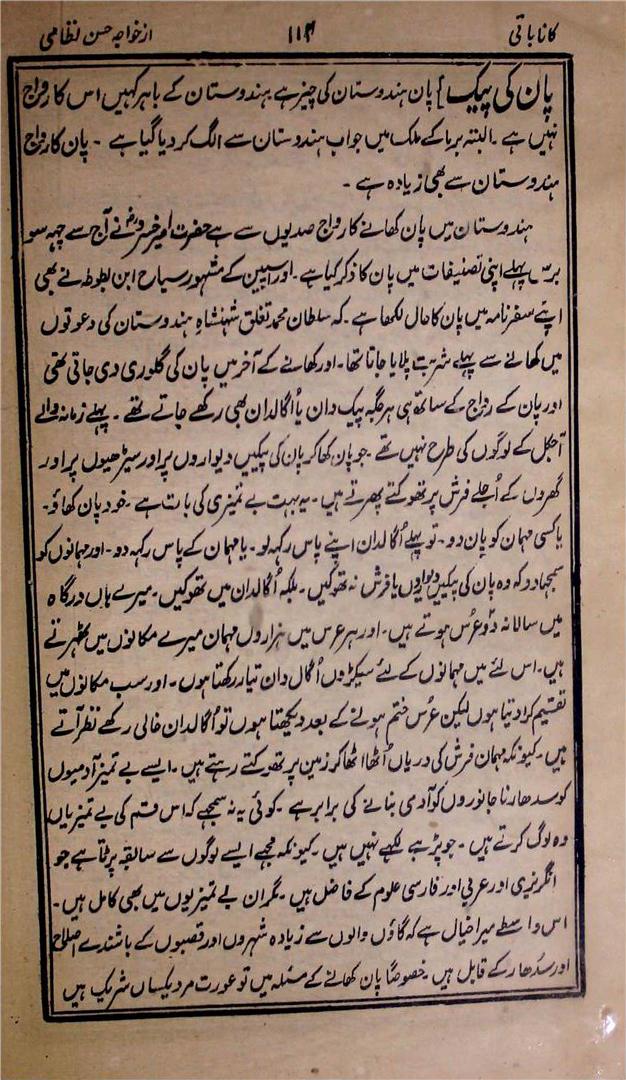 کانا باتی ۱۱۴ از خواجہ حسن نظامی
پان کی پیک] پان ہندوستان کی چیز ہے ہندوستان کے باہر کہیں اس کا رواج
نہیں ہے ۔ البتہ برما کے ملک میں جو اب ہندوستان سے الگ کر دیا گیا ہے ۔ پان کا رواج
ہندوستان سے بھی زیادہ ہے ۔
ہندوستان میں پان کھانے کا رواج صدیوں سے ہے حضرت امیر خسروؒ نے آج سے چھہ سو
برس پہلے اپنی تصنیفات میں پان کا ذکر کیا ہے ۔ اور اسپین کے مشہور سیاح ابن بطوطہ نے بھی
اپنے سفر نامہ میں پان کا حال لکھا ہے ۔ کہ سلطان محمد تغلق شہنشاہِ ہندوستان کی دعوتوں
میں کھانے سے پہلے شربت پلایا جاتا تھا ۔ اور کھانے کے آخر میں پان کی گلوری دی جاتی تھی
اور پان کے رواج کے ساتھ ہی ہر جگہ پیک دان یا اُگالدان بھی رکھے جاتے تھے ۔ پہلے زمانہ والے
آجکل کے لوگوں کی طرح نہیں تھے ۔ جو پان کھا کر پان کی پیکیں دیواروں پر اور سیڑھیوں پر اور
گھروں کے اُجلے فرش پر تھوکتے پھرتے ہیں ۔ یہ بہت بے تمیزی کی بات ہے ۔ خود پان کھاؤ ۔
یا کسی مہمان کو پان دو ۔ تو پہلے اُگالدان اپنے پاس رکھہ لو ۔ یا مہمان کے پاس رکھہ دو ۔ اور مہمانوں کو
سمجھا دو کہ وہ پان کی پیکیں دیواروں یا فرش نہ تھوکیں ۔ بلکہ اُگالدان میں تھوکیں ۔ میرے ہاں درگاہ
میں سالانہ دو عُرس ہوتے ہیں ۔ اور ہر عرس میں ہزاروں مہمان میرے مکانوں میں ٹھہرتے
ہیں ۔ اس لئے میں مہمانوں کے لئے سیکڑوں اُگال دان تیار رکھتا ہوں ۔ اور سب مکانوں میں
تقسیم کرا دیتا ہوں لیکن عُرس ختم ہونے کے بعد دیکھتا ہوں تو اُگالدان خالی رکھے نظر آتے
ہیں ۔ کیونکہ مہمان فرش کی دریاں اُٹھا اٹھا کر زمین پر تھوکتے رہتے ہیں ۔ ایسے بے تمیز آدمیوں
کو سدھارنا جانوروں کو آدمی بنانے کی برابر ہے ۔ کوئی یہ نہ سمجھے کہ اس قسم کی بے تمیزیاں
وہ لوگ کرتے ہیں ۔ جو پڑہے لکھے نہیں ہیں ۔ کیونکہ مجھے ایسے لوگوں سے سابقہ پڑتا ہے جو
انگریزی اور عربی اور فارسی علوم کے فاضل ہیں ۔ مگر ان بے تمیزیوں میں بھی کامل ہیں ۔
اس واسطے میرا خیال ہے کہ گاؤں والوں سے زیادہ شہروں اور قصبوں کے باشندے اصلاح
اور سدھار کے قابل ہیں ۔ خصوصًا پان کھانے کے مسئلہ میں تو عورت مرد یکساں شریک ہیں